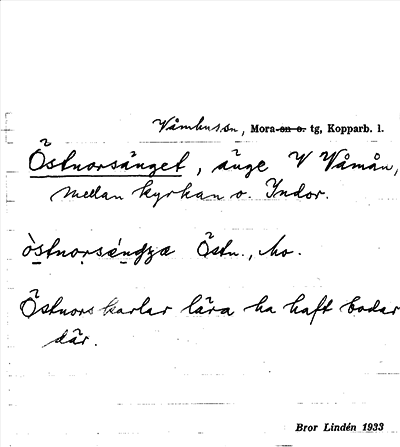 Våmhussn, Mora-sn o. tg, Kopparb. l.
Östnorsänget, änge V Våmån,
mellan kyrkan o. Indor.
östnorsęŋgʒa Östn., Mo.
Östnorskarlar lära ha haft bodar
där.
Bror Lindén 1933